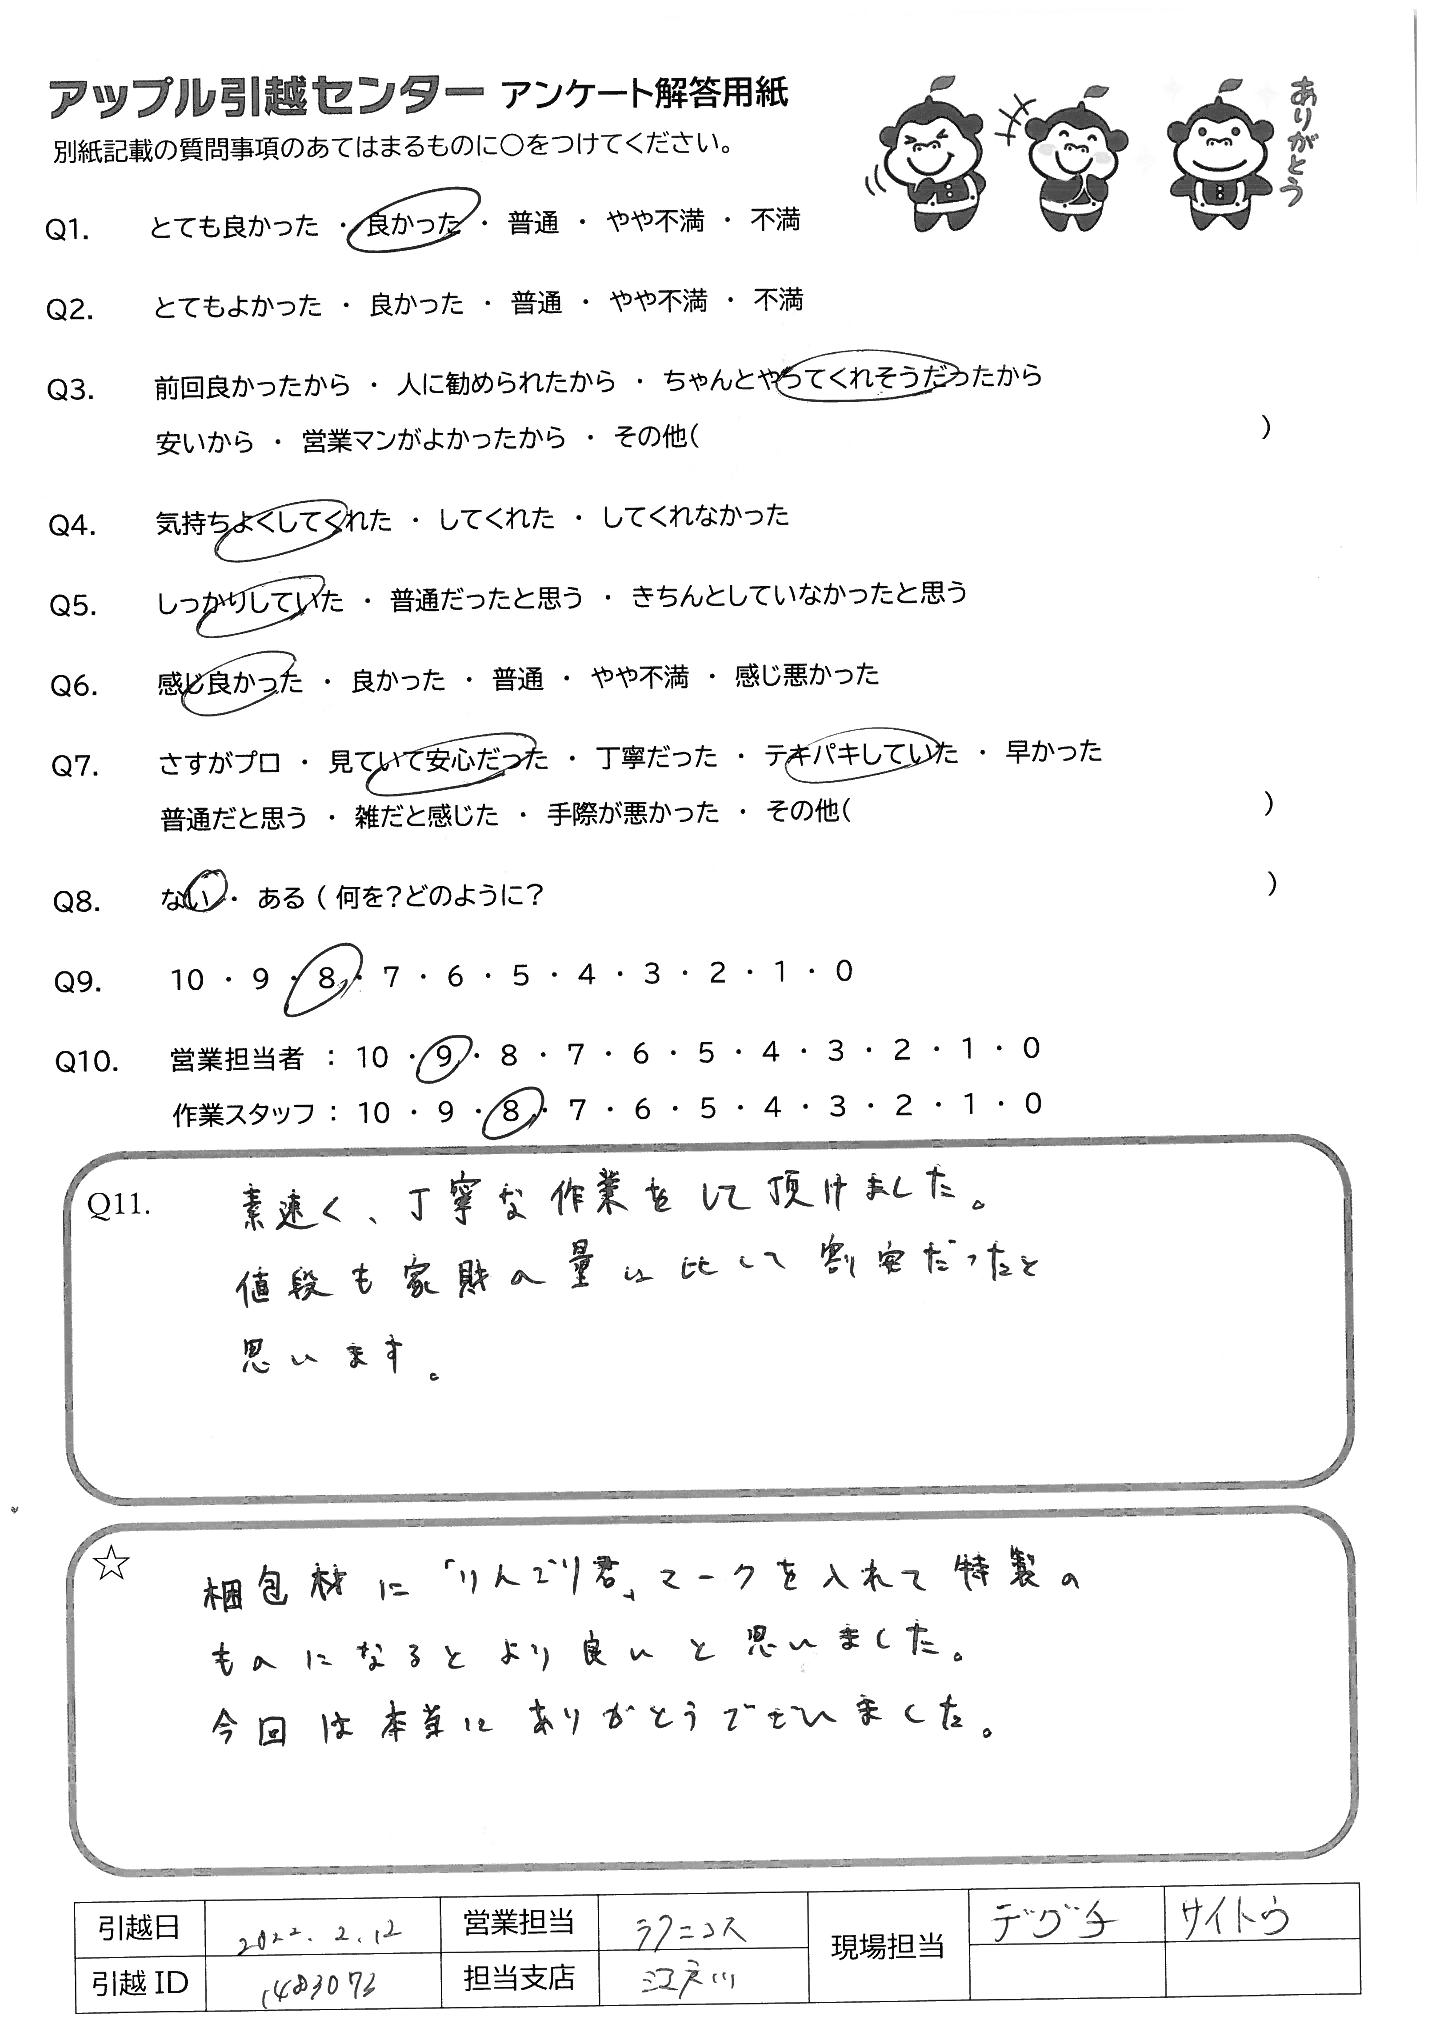 アップル引越センター アンケート解答用紙
ありがとう
別紙記載の質問事項のあてはまるものに○をつけてください。
Q1. とても良かった ・ 良かった ・ 普通 ・ やや不満 ・ 不満
Q2. とてもよかった ・ 良かった ・ 普通 ・ やや不満 ・ 不満
Q3. 前回良かったから ・ 人に勧められたから ・ ちゃんとやってくれそうだったから
安いから ・ 営業マンがよかったから ・ その他( )
Q4. 気持ちよくしてくれた ・ してくれた ・ してくれなかった
Q5. しっかりしていた ・ 普通だったと思う ・ きちんとしていなかったと思う
Q6. 感じ良かった ・ 良かった ・ 普通 ・ やや不満 ・ 感じ悪かった
Q7. さすがプロ ・ 見ていて安心だった ・ 丁寧だった ・ テキパキしていた ・ 早かった
普通だと思う ・ 雑だと感じた ・ 手際が悪かった ・ その他( )
Q8. ない ・ ある ( 何を?どのように? )
Q9. 10 ・ 9 ・ 8 ・ 7 ・ 6 ・ 5 ・ 4 ・ 3 ・ 2 ・ 1 ・ 0
Q10. 営業担当者 : 10 ・ 9 ・ 8 ・ 7 ・ 6 ・ 5 ・ 4 ・ 3 ・ 2 ・ 1 ・ 0
作業スタッフ : 10 ・ 9 ・ 8 ・ 7 ・ 6 ・ 5 ・ 4 ・ 3 ・ 2 ・ 1 ・ 0
Q11. 素速く、丁寧な作業をして頂けました。
値段も家財の量に比して割安だったと
思います。
☆ 梱包材に「りんごり君」マークを入れて特製の
ものになるとより良いと思いました。
今回は本当にありがとうございました。
引越日 2022.2.12 営業担当 現場担当 デグチ サイトウ
引越ID 1483073 担当支店 江戸川